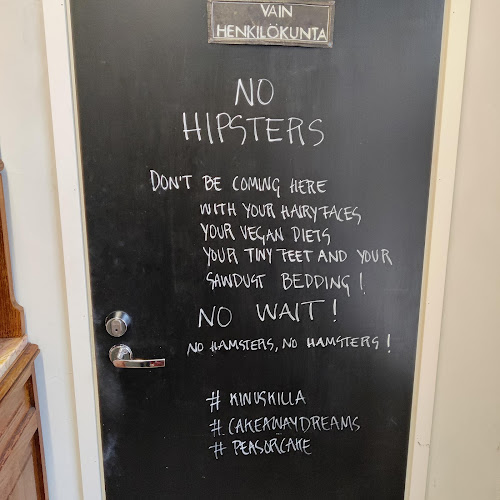 VAIN
HENKILÖKUNTA
NO
HIPSTERS
DON'T BE COMING HERE
WITH YOUR HAIRY FACES
YOUR VEGAN DIETS
YOUR TINY FEET AND YOUR
SAWDUST BEDDING!
NO WAIT!
NO HAMSTERS, NO HAMSTERS!
# KINUSKILLA
# CAKEAWAYDREAMS
# PEASORCAKE